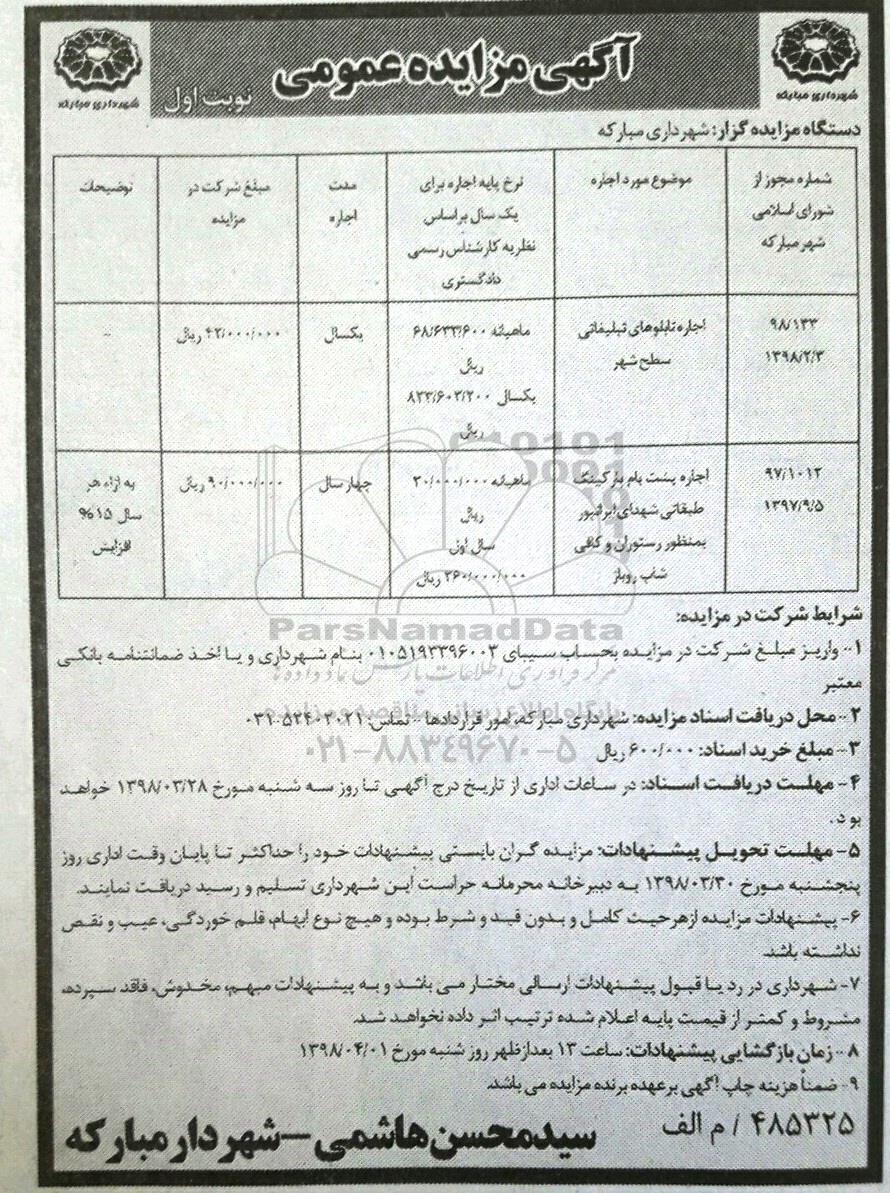 آگهی مزایده عمومی
نوبت اول
شهرداری مبارکه
شهرداری مبارکه
دستگاه مزایده گزار: شهرداری مبارکه
شماره مجوز از شورای اسلامی شهر مبارکه
موضوع مورد اجاره
نرخ پایه اجاره برای یک سال براساس نظریه کارشناس رسمی دادگستری
مدت اجاره
مبلغ شرکت در مزایده
توضیحات
۹۸/۱۳۳
۱۳۹۸/۲/۳
اجاره تابلوهای تبلیغاتی
سطح شهر
ماهیانه ۶۸/۶۳۳/۶۰۰
ریال
یکسال ۸۳۳/۶۰۳/۲۰۰
ریال
یکسال
۴۲/۰۰۰/۰۰۰ ریال
-
۹۷/۱۰۱۲
۱۳۹۷/۹/۵
اجاره پشت بام پارکینگ
طبقاتی شهدای ایرانپور
بمنظور رستوران و کافی
شاپ روباز
ماهیانه ۳۰/۰۰۰/۰۰۰
ریال
سال اول
۳۶۰/۰۰۰/۰۰۰ ریال
چهار سال
۹۰/۰۰۰/۰۰۰ ریال
به ازاء هر
سال ۱۵%
افزایش
ParsNamadData
مرکز فرآوری اطلاعات پارس نماد داده ها
پایگاه اطلاع رسانی مناقصه و مزایده
۰۲۱-۸۸۳۴۹۶۷۰-۵
شرایط شرکت در مزایده:
۱- واریز مبلغ شرکت در مزایده بحساب سیبای ۰۱۰۵۱۹۳۳۹۶۰۰۳ بنام شهرداری و یا اخذ ضمانتنامه بانکی
معتبر
۲- محل دریافت اسناد مزایده: شهرداری مبارکه، امور قراردادها - تماس: ۰۳۱-۵۲۴۰۳۰۲۱
۳- مبلغ خرید اسناد: ۶۰۰/۰۰۰ ریال
۴- مهلت دریافت اسناد: در ساعات اداری از تاریخ درج آگهی تا روز سه شنبه مورخ ۱۳۹۸/۰۳/۲۸ خواهد
بود.
۵- مهلت تحویل پیشنهادات: مزایده گران بایستی پیشنهادات خود را حداکثر تا پایان وقت اداری روز
پنجشنبه مورخ ۱۳۹۸/۰۳/۳۰ به دبیرخانه محرمانه حراست این شهرداری تسلیم و رسید دریافت نمایند.
۶- پیشنهادات مزایده ازهر حیث کامل و بدون قید و شرط بوده و هیچ نوع ابهام، قلم خوردگی، عیب و نقص
نداشته باشد.
۷- شهرداری در رد یا قبول پیشنهادات ارسالی مختار می باشد و به پیشنهادات مبهم، مخدوش، فاقد سپرده،
مشروط و کمتر از قیمت پایه اعلام شده ترتیب اثر داده نخواهد شد.
۸- زمان بازگشایی پیشنهادات: ساعت ۱۳ بعدازظهر روز شنبه مورخ ۱۳۹۸/۰۴/۰۱
۹- ضمناً هزینه چاپ آگهی برعهده برنده مزایده می باشد.
۴۸۵۳۲۵ / م الف
سیدمحسن هاشمی - شهردار مبارکه